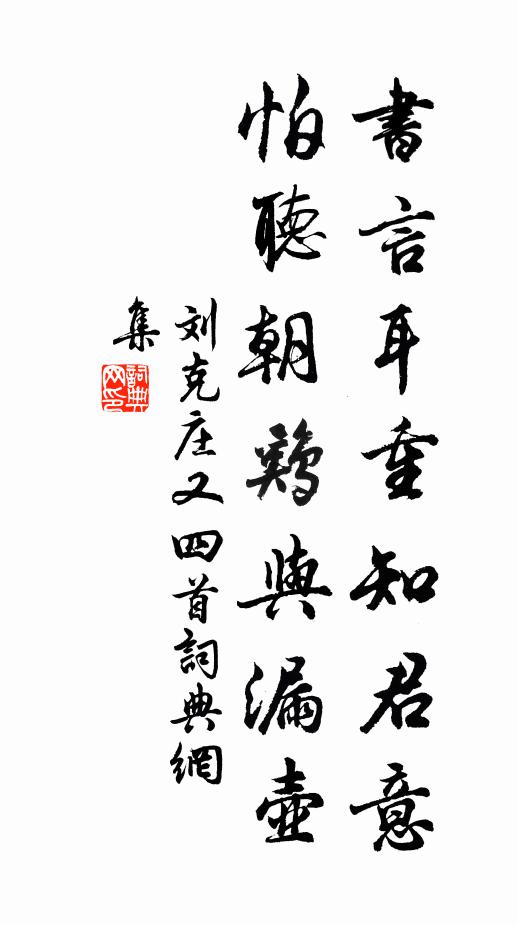 書言耳重知君意
怕聽朝鷄與漏壺
刘克庄又四首詞典網
集
詞典網印